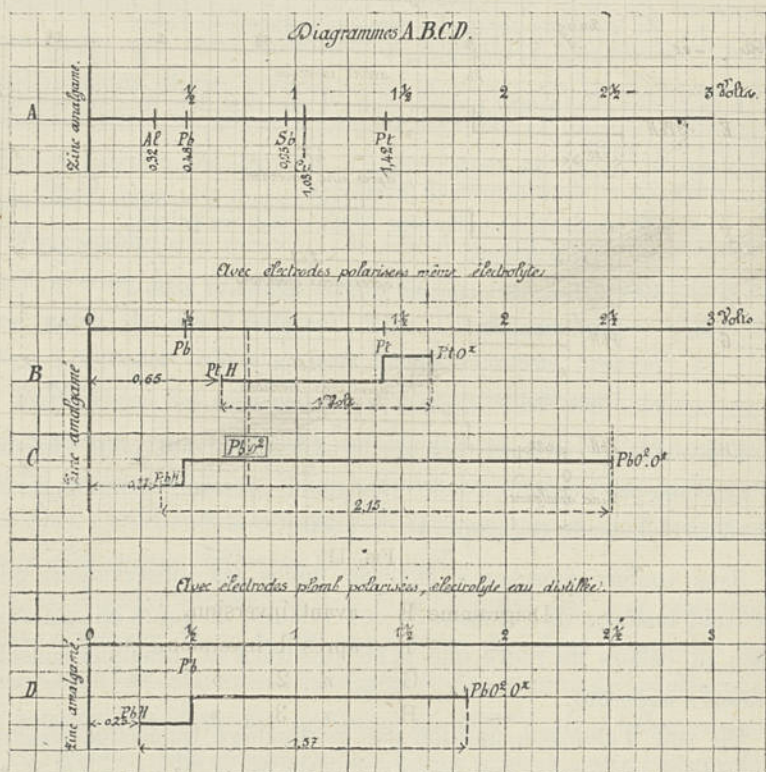 Diagrammes A.B.C.D.
Zinc amalgamé.
A
½ 1 1½ 2 2½ 3 Volts.
Al Pb Sb Cu Pt
0,32 0,48 0,95 1,03 1,42
Avec électrodes polarisées même électrolyte
0 ½ 1 1½ 2 2½ 3 Volts
Zinc amalgamé
B
Pb Pt
0,65 Pt H PtOˣ
1 Volt
C
PbO²
PbH PbO².Oˣ
2,15
Avec électrodes plomb polarisées, électrolyte eau distillée.
0 ½ 1 1½ 2 2½ 3
Zinc amalgamé.
Pb
D
PbH PbO².Oˣ
0,25
1,57